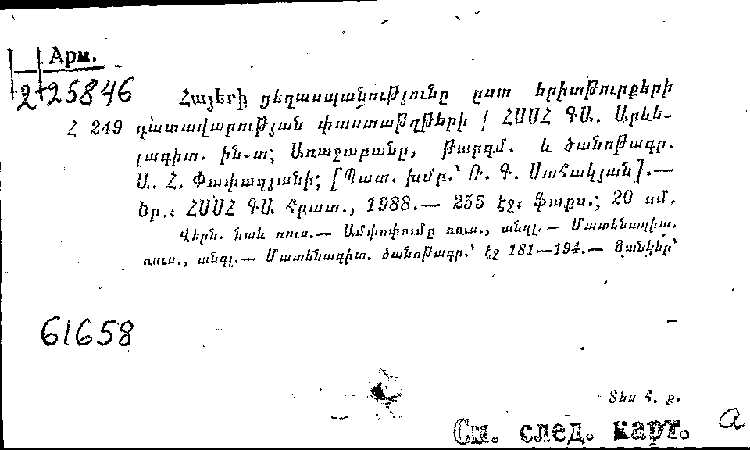 Арм.
2-25846
Հայերի ցեղասպանությունը ըստ երիտթուրքերի
Հ 249 դատավարության փաստաթղթերի / ՀՍՍՀ ԳԱ. Արևե-
լագիտ. ին-տ; Առաջաբանը, թարգմ. և ծանոթագր.
Ա. Հ. Փափազյանի; [Պատ. խմբ.՝ Ռ. Գ. Սահակյան].—
Եր.: ՀՍՍՀ ԳԱ հրատ., 1988.— 255 էջ, ֆաքս.; 20 սմ.
Վերն. նաև ռուս.— Ամփոփումը ռուս., անգլ.— Մատենագիտ.
ռուս., անգլ.— Մատենագիտ. ծանոթագր.՝ էջ 181—194.— Ցանկեր՝
61658
Տես հ. ք.
См. след. карт. a